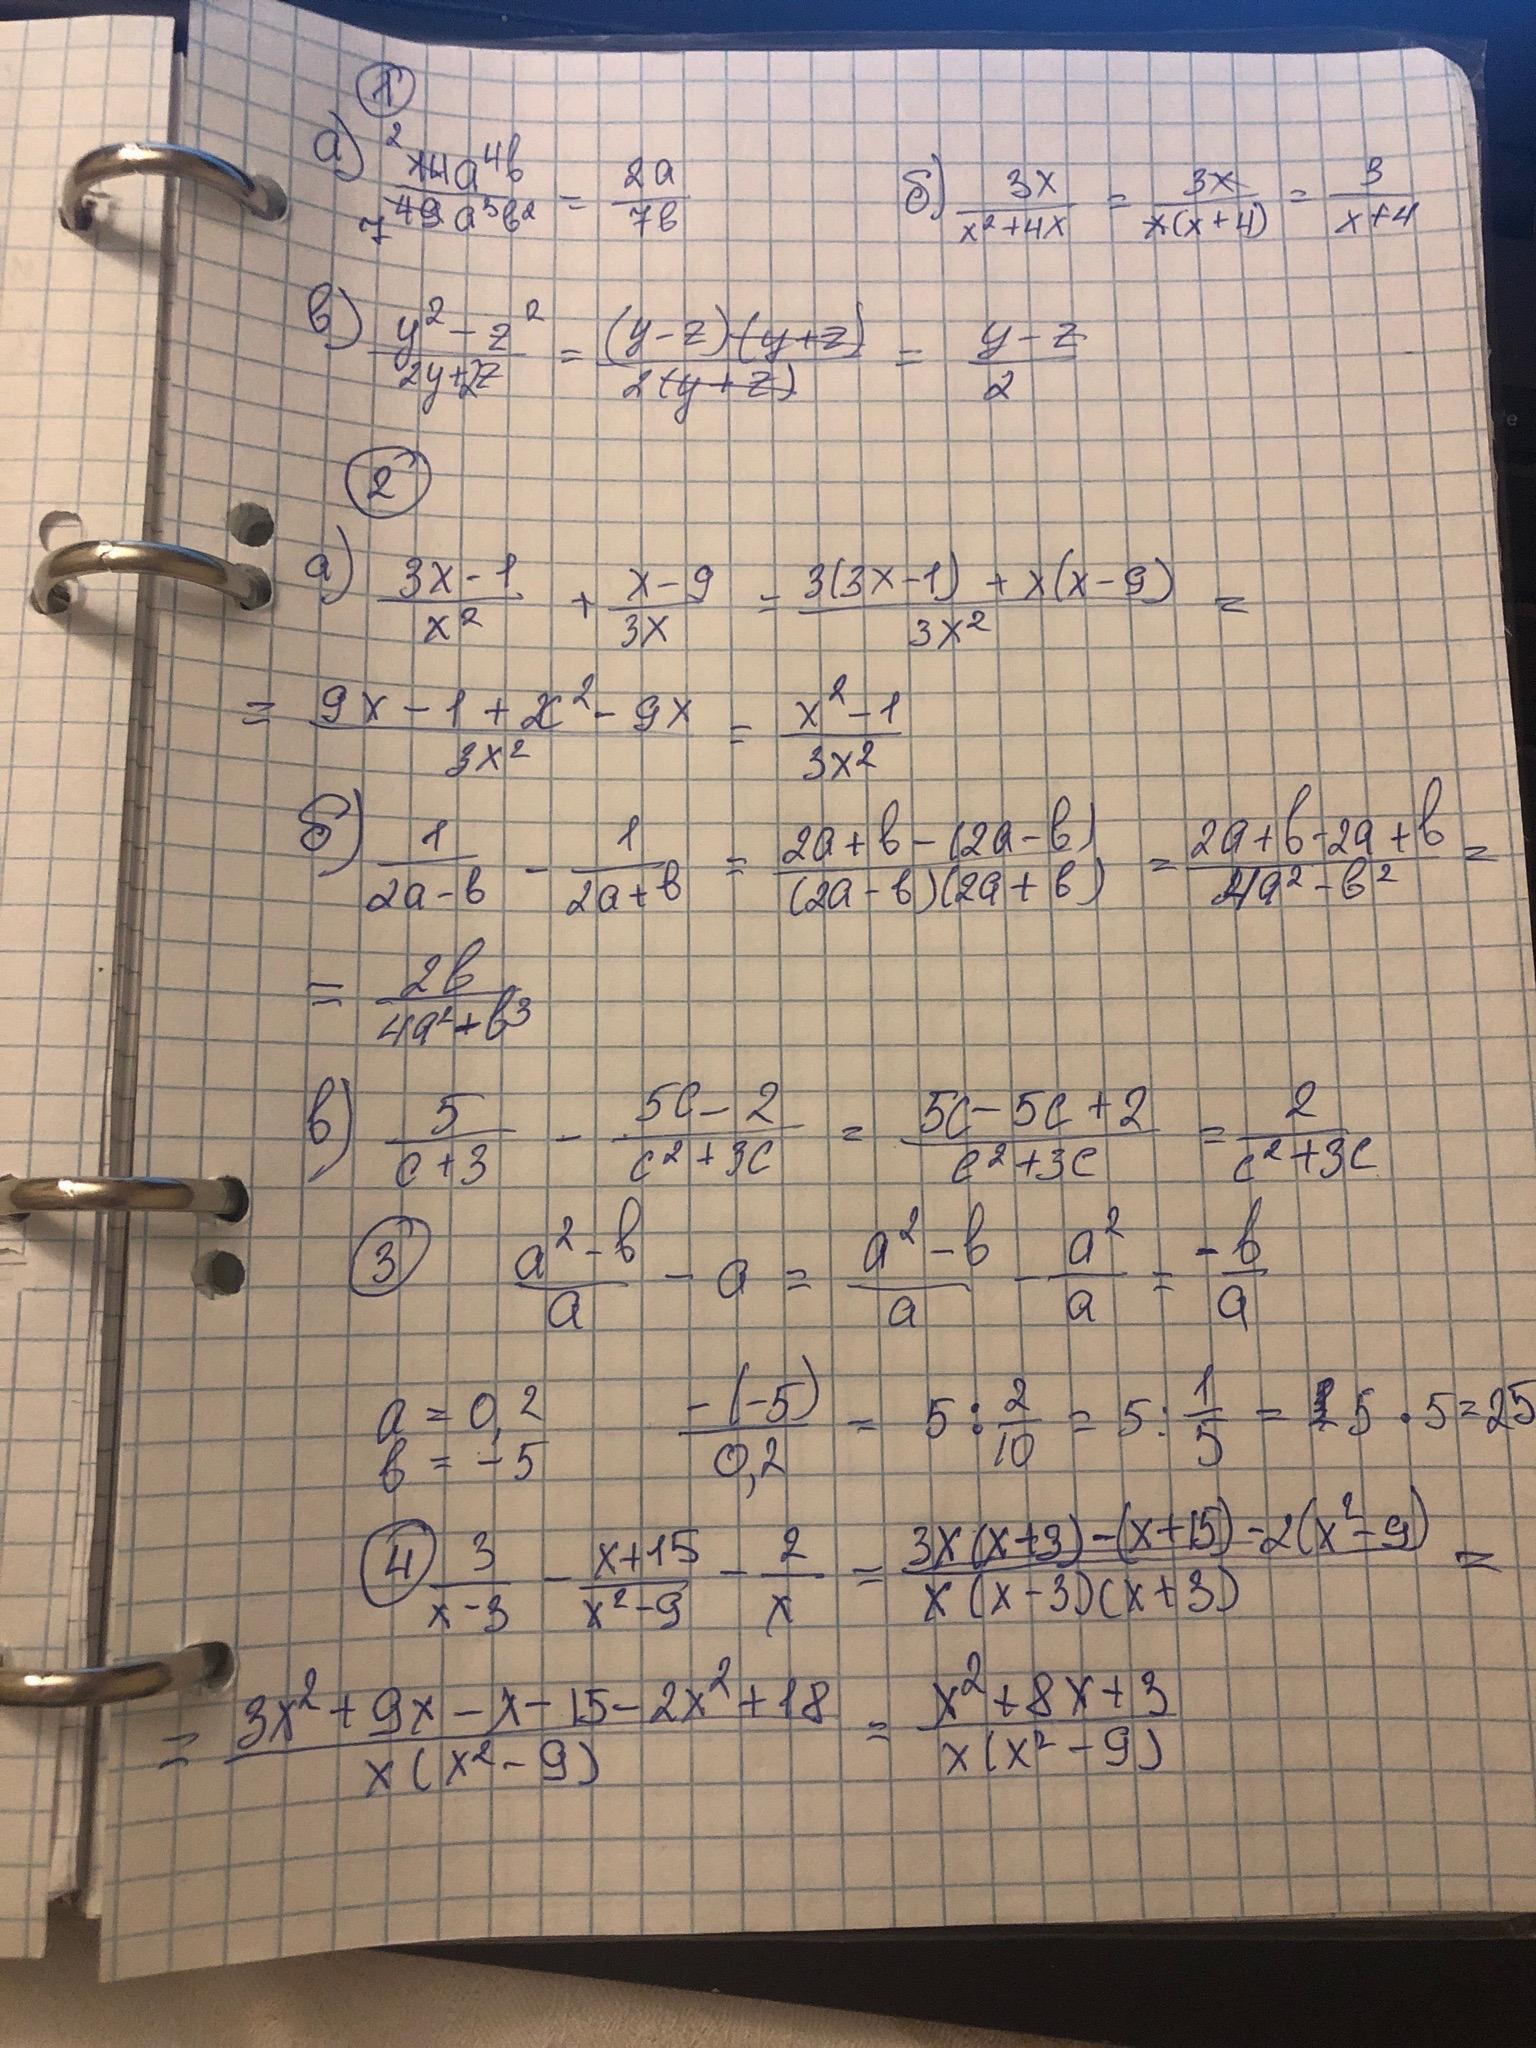 ①
а) ²14a⁴b / ₇49a³b² = 2a / 7b   б) 3x / x²+4x = 3x / x(x+4) = 3 / x+4
в) y²-z² / 2y+2z = (y-z)(y+z) / 2(y+z) = y-z / 2
②
а) 3x-1 / x² + x-9 / 3x = 3(3x-1)+x(x-9) / 3x² =
= 9x-1+x²-9x / 3x² = x²-1 / 3x²
б) 1 / 2a-b - 1 / 2a+b = 2a+b-(2a-b) / (2a-b)(2a+b) = 2a+b-2a+b / 4a²-b² =
= 2b / 4a²+b³
в) 5 / c+3 - 5c-2 / c²+3c = 5c-5c+2 / c²+3c = 2 / c²+3c
③ a²-b / a - a = a²-b / a - a² / a = -b / a
a = 0,2   -(-5) / 0,2 = 5 : 2/10 = 5 : 1/5 = 5 · 5 = 25
b = -5
④ 3 / x-3 - x+15 / x²-9 - 2 / x = 3x(x+3)-(x+15)-2(x²-9) / x(x-3)(x+3) =
= 3x²+9x-x-15-2x²+18 / x(x²-9) = x²+8x+3 / x(x²-9)